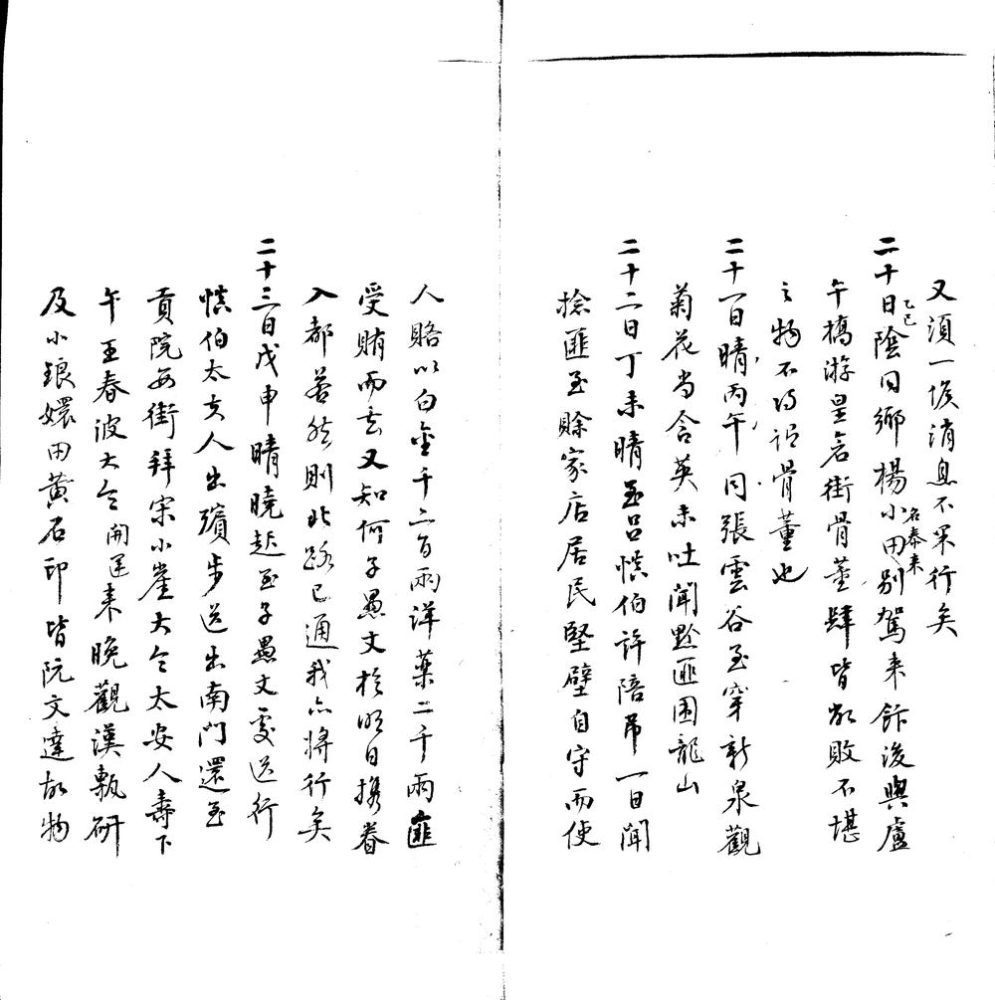 又須一候消息不果行矣
二十日乙巳陰同鄉楊小田名泰来別駕来飯後與盧
午橋游皇宮街骨董肆皆敝敗不堪
之物不得謂骨董也
二十一日晴丙午同張雲谷至穿新泉觀
菊花尚含英未吐聞黔匪困龍山
二十二日丁未晴至呂慎伯許陪弔一日聞
捻匪至賒家店居民堅壁自守而使
人賂以白金千二百兩洋藥二千兩匪
受賄而去又知何子愚丈於明日携眷
入都若然則北路已通我亦將行矣
二十三日戊申晴曉起至子愚丈處送行
慎伯太夫人出殯步送出南門還至
貢院西街拜宋小崖大令太安人壽下
午王春波大令開運来晚觀漢甎研
及小琅嬛田黃石印皆阮文達故物